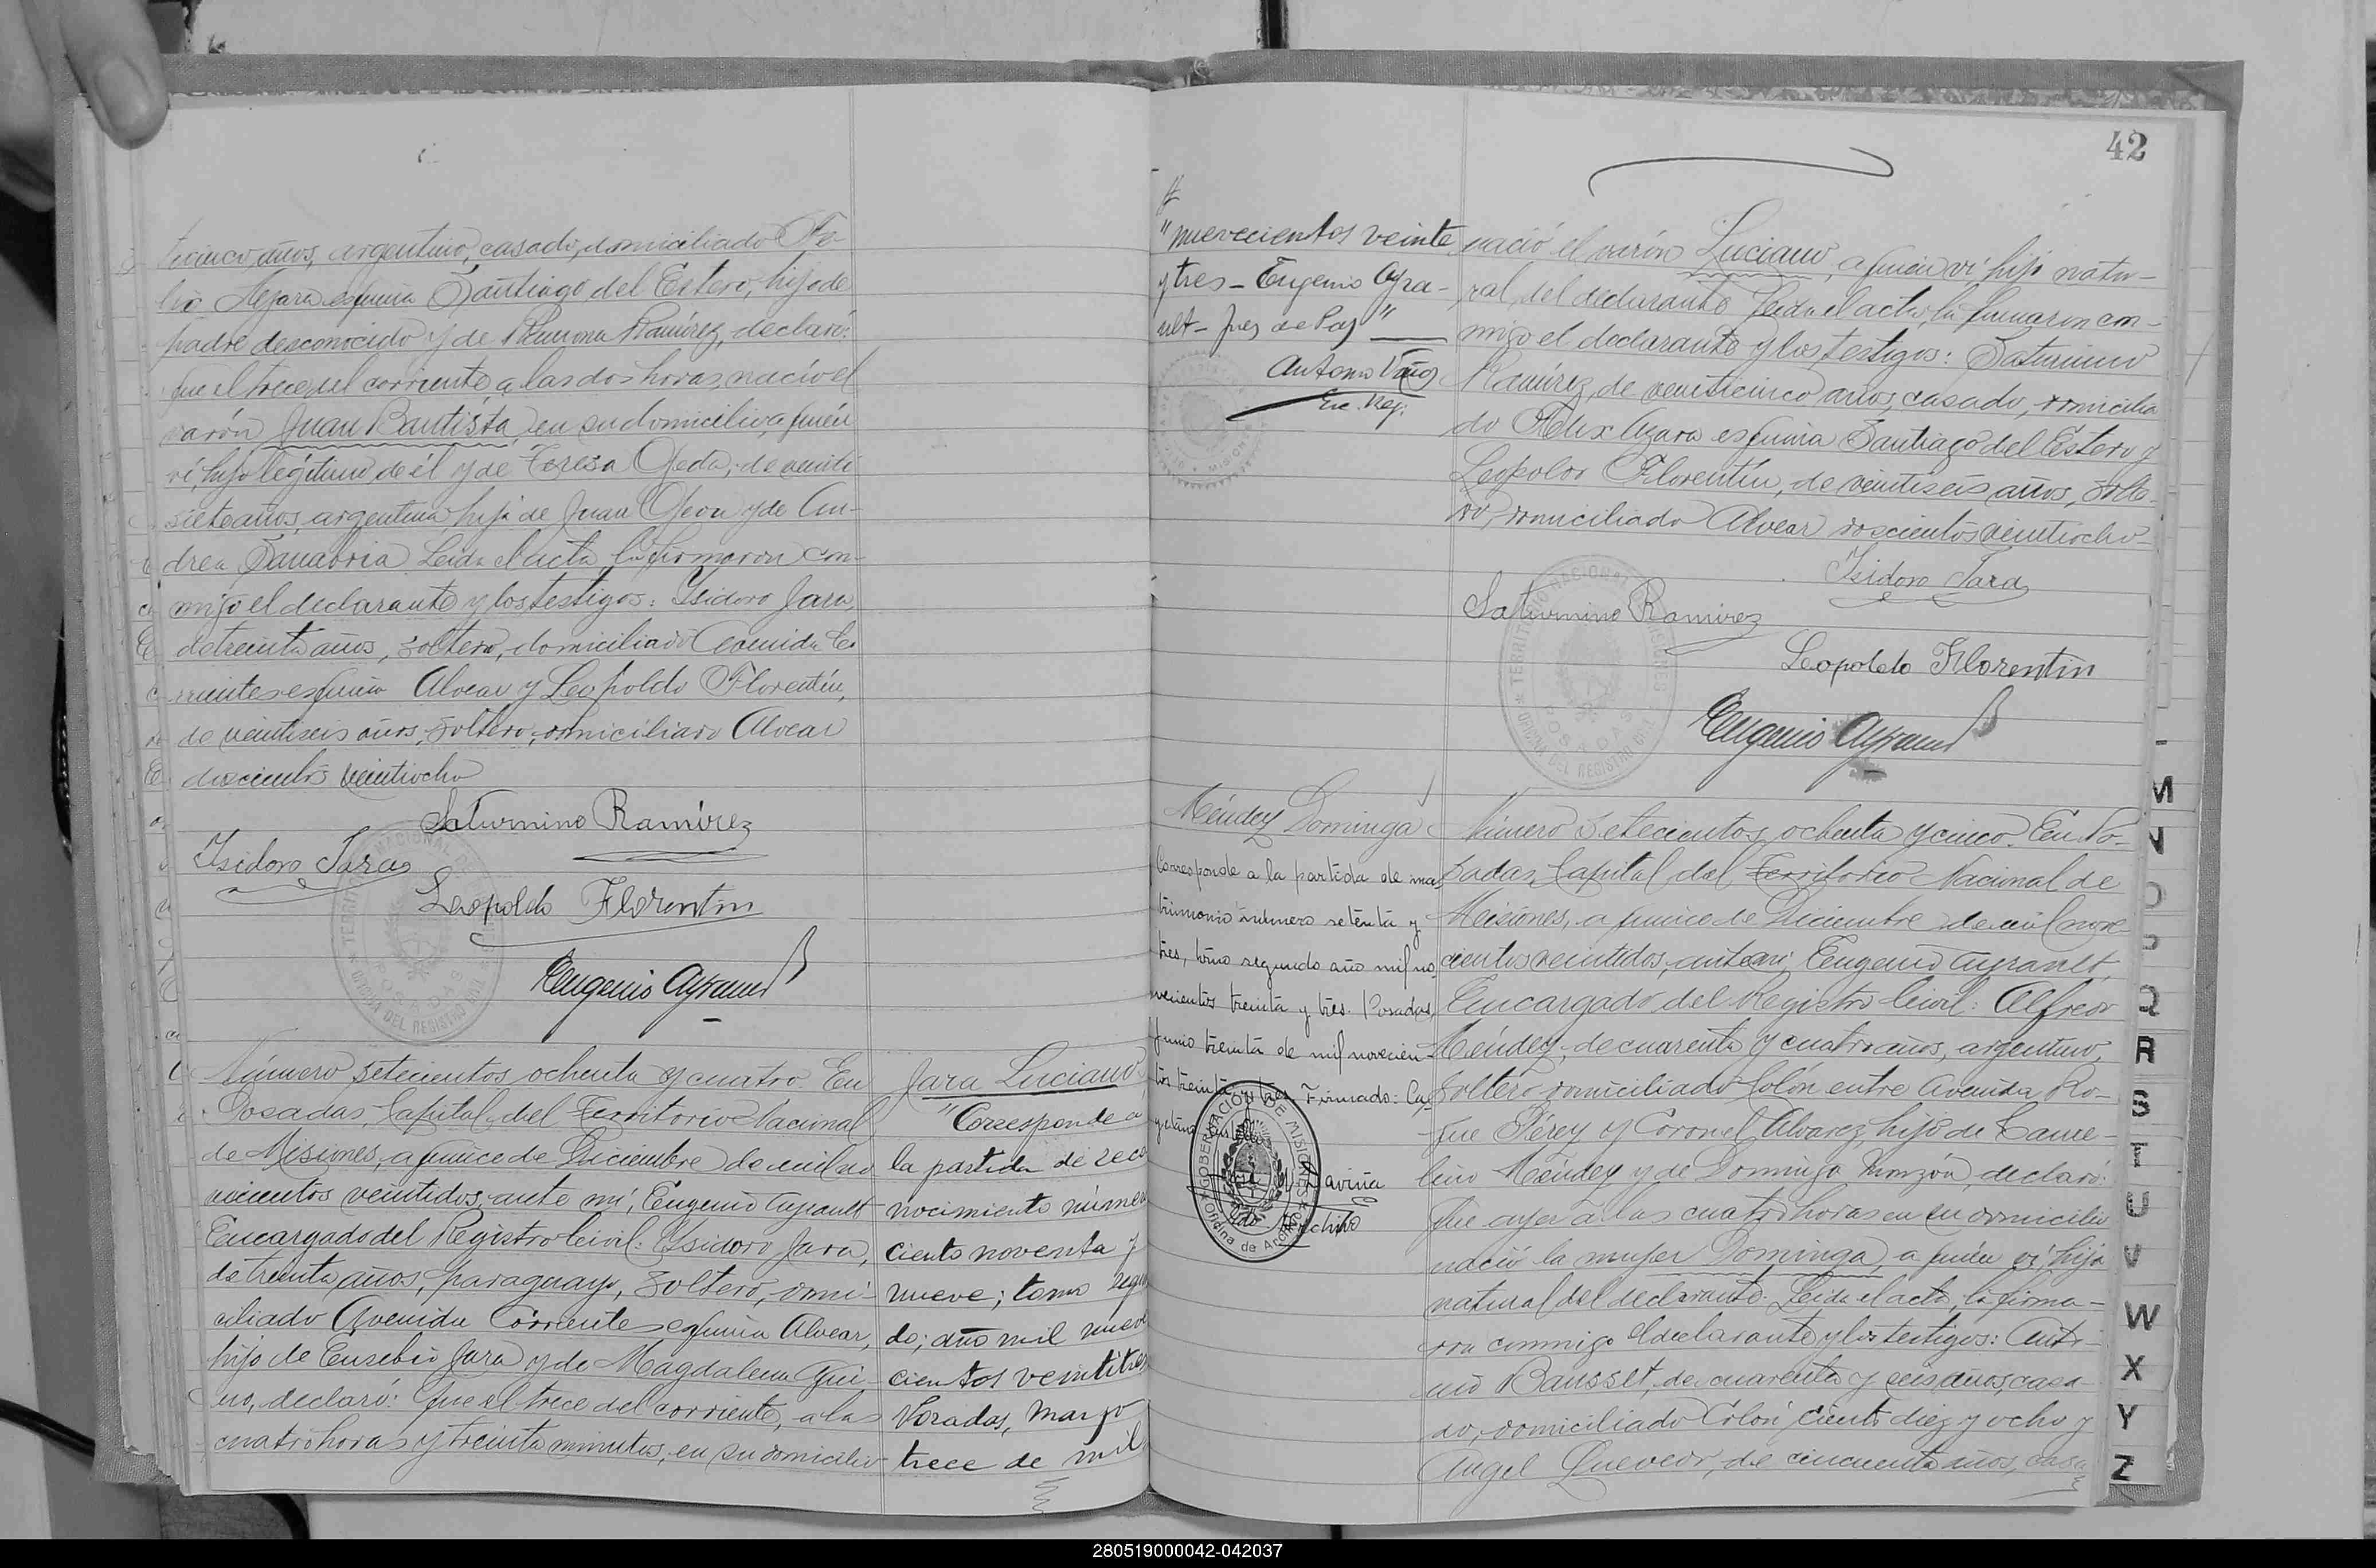 ticinco años, argentino, casado, domiciliado Fe-
lix Azara esquina Santiago del Estero, hijo de
padre desconocido y de Ramona Ramírez, declaró:
que el trece del corriente a las dos horas, nació el
varón Juan Bautista, en su domicilio, a quién
ví, hijo legítimo de él y de Teresa Ojeda, de veinti
siete años, argentina, hija de Juan Ojeda y de An-
drea Sanabria. Leida el acta, la firmaron con-
migo el declarante y los testigos: Isidoro Jara,
de treinta años, soltero, domiciliado Avenida Co
rrientes esquina Alvear y Leopoldo Florentín,
de veintiseis años, soltero, domiciliado Alvear
doscientos veintiocho
Saturnino Ramírez
Isidoro Jara
Leopoldo Florentin
Eugenio Ayrault
Número setecientos ochenta y cuatro. En
Posadas, Capital del Territorio Nacional
de Misiones, a quince de Diciembre de mil no
vecientos veintidos, ante mí, Eugenio Ayrault
Encargado del Registro Civil: Isidoro Jara,
de treinta años, paraguayo, soltero, domi-
ciliado Avenida Corrientes esquina Alvear,
hijo de Eusebio Jara y de Magdalena
declaró: Que el trece del corriente, a las
cuatro horas y treinta minutos, en su domicilio
Jara Luciano
"Corresponde a
la partida de reco
nocimiento número
ciento noventa y
nueve; tomo segun
do; año mil nueve
cientos veintitres
Posadas, Marzo
trece de mil
42
"nuevecientos veinte
y tres - Eugenio Ayra-
ult - Juez de Paz"
Enc. Reg.
nació el varón Luciano, a quien ví, hijo natu-
ral del declarante. Leida el acta, la firmaron con-
migo el declarante y los testigos: Saturnino
Ramírez, de veinticinco años, casado, domicilia
do Felix Azara esquina Santiago del Estero y
Leopoldo Florentín, de veintiseis años, solte-
ro, domiciliado Alvear doscientos veintiocho-
Isidoro Jara
Saturnino Ramirez
Leopoldo Florentin
Eugenio Ayrault
Méndez Dominga
Corresponde a la partida de ma
trimonio número setenta y
tres, tomo segundo año mil no
vecientos treinta y tres. Posadas,
Junio treinta de mil novecien-
tos treinta y tres. Firmado: Ca-
yetano
GOBERNACIÓN DE MISIONES
Oficina de Archivo
Archivo
Número setecientos ochenta y cinco. En Po-
sadas, Capital del Territorio Nacional de
Misiones, a quince de Diciembre de mil nove
cientos veintidos, ante mi, Eugenio Ayrault,
Encargado del Registro Civil: Alfredo
Méndez, de cuarenta y cuatro años, argentino,
soltero domiciliado Colón entre Avenida Ro-
que Pérez y Coronel Alvarez, hijo de Came-
lino Méndez y de Dominga Monzón, declaró:
Que ayer a las cuatro horas en su domicilio
nació la mujer Dominga, a quién ví, hija
natural del declarante. Leida el acta, la firma-
ron conmigo el declarante y los testigos: Anto-
nio Bausset, de cuarenta y seis años, casa-
do, domiciliado Colón ciento diez y ocho y
Angel Quevedo, de cincuenta años, casa
M
N
O
P
Q
R
S
T
U
V
W
X
Y
Z
280519000042-042037